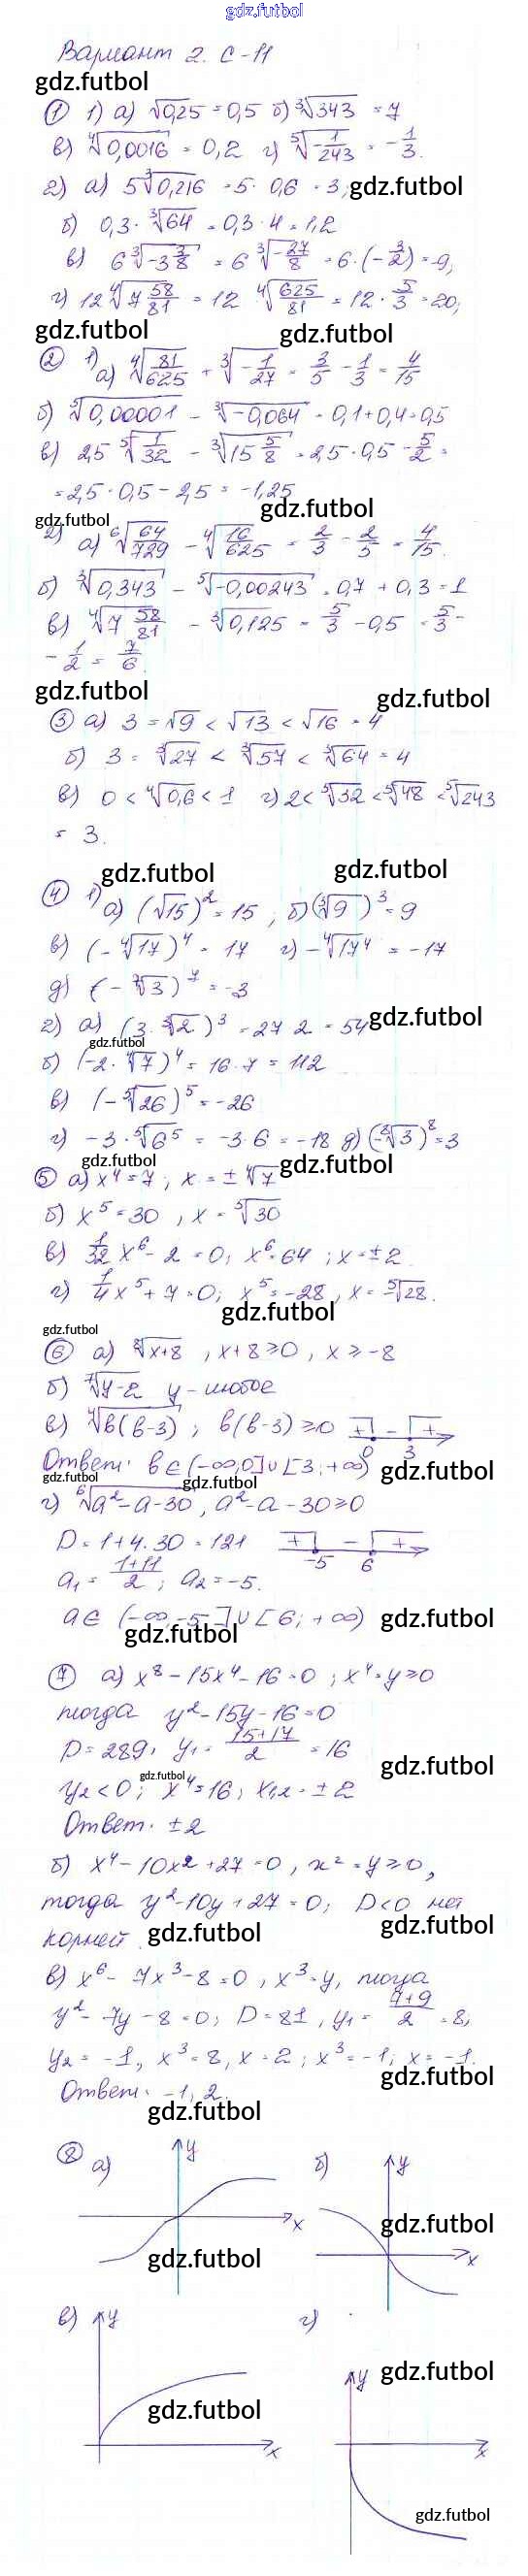 gdz.futbol
Вариант 2. С-11
gdz.futbol
① 1) а) √0,25 = 0,5 б) ³√343 = 7
в) ⁴√0,0016 = 0,2 г) ⁵√-1/243 = -1/3.
2) а) 5³√0,216 = 5 · 0,6 = 3; gdz.futbol
б) 0,3 · ³√64 = 0,3 · 4 = 1,2
в) 6 ³√-3 3/8 = 6 ³√-27/8 = 6 · (-3/2) = -9;
г) 12 ⁴√7 58/81 = 12 ⁴√625/81 = 12 · 5/3 = 20;
gdz.futbol gdz.futbol
② 1) а) ⁴√81/625 + ³√-1/27 = 3/5 - 1/3 = 4/15
б) ⁵√0,00001 - ³√-0,064 = 0,1 + 0,4 = 0,5
в) 2,5 ⁵√1/32 - ³√15 5/8 = 2,5 · 0,5 - 5/2 =
= 2,5 · 0,5 - 2,5 = -1,25
gdz.futbol gdz.futbol
2) а) ⁶√64/729 - ⁴√16/625 = 2/3 - 2/5 = 4/15.
б) ³√0,343 - ⁵√-0,00243 = 0,7 + 0,3 = 1
в) ⁴√7 58/81 - ³√0,125 = 5/3 - 0,5 = 5/3 -
- 1/2 = 7/6.
gdz.futbol gdz.futbol
③ а) 3 = √9 < √13 < √16 = 4
б) 3 = ³√27 < ³√57 < ³√64 = 4
в) 0 < ⁴√0,6 < 1 г) 2 < ⁵√32 < ⁵√48 < ⁵√243
= 3.
gdz.futbol gdz.futbol
④ 1) а) (√15)² = 15; б) (³√9)³ = 9
в) (-⁴√17)⁴ = 17 г) -⁴√17⁴ = -17
д) (-⁷√3)⁷ = -3
2) а) (3 · ³√2)³ = 27 · 2 = 54 gdz.futbol
gdz.futbol
б) (-2 · ⁴√7)⁴ = 16 · 7 = 112
в) (-⁵√26)⁵ = -26
г) -3 · ⁵√6⁵ = -3 · 6 = -18 д) (-⁸√3)⁸ = 3
gdz.futbol gdz.futbol
⑤ а) x⁴ = 7; x = ±⁴√7
б) x⁵ = 30, x = ⁵√30
в) 1/32 x⁶ - 2 = 0; x⁶ = 64; x = ±2
г) 1/4 x⁵ + 7 = 0; x⁵ = -28, x = -⁵√28.
gdz.futbol
gdz.futbol
⑥ а) ⁸√x+8, x+8 ≥ 0, x ≥ -8
б) ⁷√y-2 y - любое
в) ⁴√b(b-3); b(b-3) ≥ 0 + - + 0 3
Ответ: b ∈ (-∞; 0] ∪ [3; +∞) gdz.futbol
gdz.futbol gdz.futbol
г) ⁶√a²-a-30, a²-a-30 ≥ 0
D = 1 + 4 · 30 = 121 + - + -5 6
a₁ = 1+11/2; a₂ = -5.
a ∈ (-∞; -5] ∪ [6; +∞) gdz.futbol
gdz.futbol
⑦ а) x⁸ - 15x⁴ - 16 = 0; x⁴ = y ≥ 0
тогда y² - 15y - 16 = 0
D = 289, y₁ = 15+17/2 = 16
gdz.futbol
gdz.futbol
y₂ < 0; x⁴ = 16; x₁,₂ = ±2
Ответ: ±2
б) x⁴ - 10x² + 27 = 0, x² = y ≥ 0,
тогда y² - 10y + 27 = 0; D < 0 нет
корней. gdz.futbol gdz.futbol
в) x⁶ - 7x³ - 8 = 0, x³ = y, тогда
y² - 7y - 8 = 0; D = 81, y₁ = 7+9/2 = 8,
y₂ = -1, x³ = 8, x = 2; x³ = -1; x = -1.
gdz.futbol
Ответ: -1; 2.
gdz.futbol
⑧ а) y x б) y x
gdz.futbol
gdz.futbol
в) y x г) y x
gdz.futbol
gdz.futbol
gdz.futbol